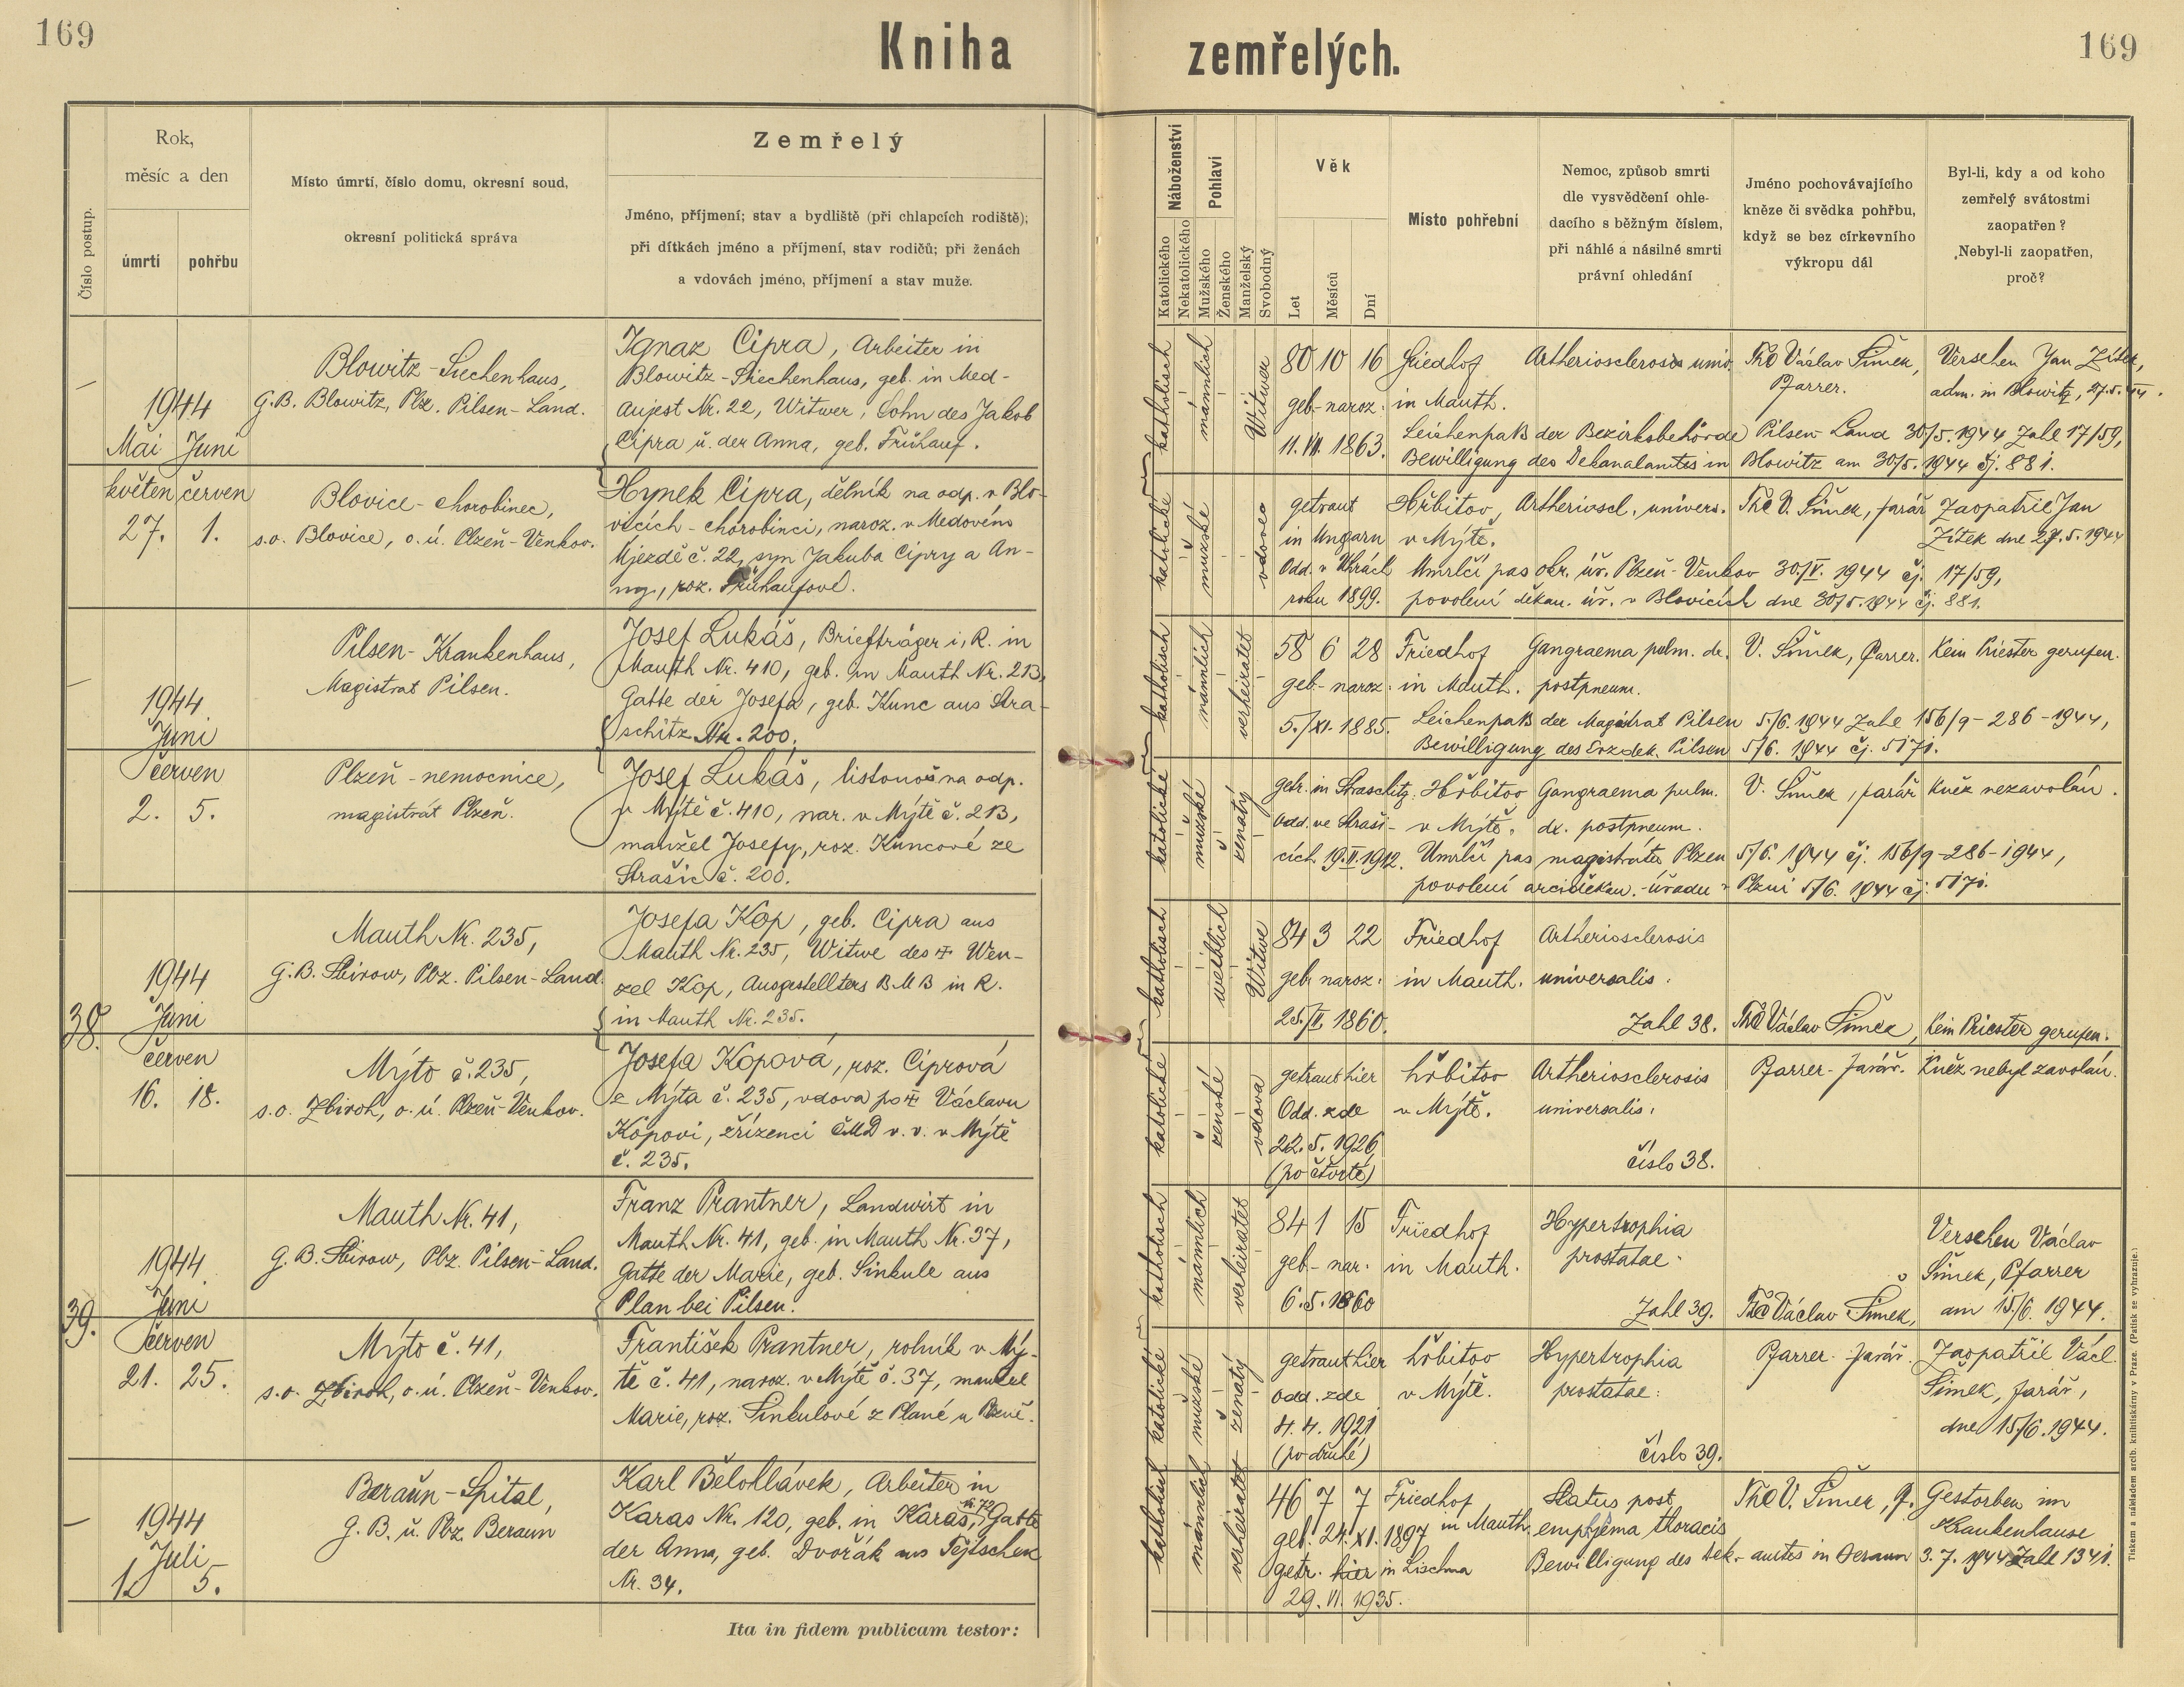 169
Kniha
zemřelých.
169
Číslo postup.
Rok,
měsíc a den
úmrtí
pohřbu
Místo úmrtí, číslo domu, okresní soud,
okresní politická správa
Zemřelý
Jméno, příjmení; stav a bydliště (při chlapcích rodiště);
při dítkách jméno a příjmení, stav rodičů; při ženách
a vdovách jméno, příjmení a stav muže.
Náboženství
Katolického
Nekatolického
Pohlaví
Mužského
Ženského
Manželský
Svobodný
Věk
Let
Měsíců
Dní
Místo pohřební
Nemoc, způsob smrti
dle vysvědčení ohle-
dacího s běžným číslem,
při náhlé a násilné smrti
právní ohledání
Jméno pochovávajícího
kněze či svědka pohřbu,
když se bez církevního
výkropu dál
Byl-li, kdy a od koho
zemřelý svátostmi
zaopatřen?
Nebyl-li zaopatřen,
proč?
—
1944
Mai Juni
květen červen
27. 1.
Blowitz - Siechenhaus,
G.B. Blowitz, Pbz. Pilsen - Land.
Ignaz Cipra, Arbeiter in
Blowitz - Siechenhaus, geb. in Med-
aujest Nr. 22, Witwer, Sohn des Jakob
Cipra u. der Anna, geb. Frühauf.
katholisch
männlich
Witwer
80 10 16
geb.- naroz:
11. VII. 1863.
Friedhof
in Mauth.
Artheriosclerosis univ.
Th Václav Šimek,
Pfarrer.
Versehen Jan Zítek,
adm. in Blowitz, 27.5.44.
Leichenpaß der Bezirksbehörde Pilsen-Land 30/5.1944 Zahl 17/59,
Bewilligung des Dekanalamtes in Blowitz am 30/5.1944 čj. 881.
Blovice - chorobinec,
s.o. Blovice, o.ú. Plzeň - Venkov.
Hynek Cipra, dělník na odp. v Blo-
vicích - chorobinci, naroz. v Medovém
Újezdě č. 22, syn Jakuba Cipry a An-
ny, roz. Frühaufové.
katolické
mužské
vdovec
getraut
in Ungarn
Odd. v Uhrách
roku 1899.
Hřbitov
v Mýtě.
Artherioscl. univers.
V. Šimek, farář
Zaopatřil Jan
Zítek dne 27.5.1944
Umrlčí pas okr. úř. Plzeň - Venkov 30./V. 1944 čj. 17/59,
povolení děkan. úř. v Blovicích dne 30/5.1944 čj. 881.
—
1944
Juni
červen
2. 5.
Pilsen - Krankenhaus,
Magistrat Pilsen.
Josef Lukáš, Briefträger i. R. in
Mauth Nr. 410, geb. in Mauth Nr. 213,
Gatte der Josefa, geb. Kunc aus Stra-
schitz Nr. 200.
katholisch
männlich
verheiratet
58 6 28
geb.- naroz:
5./XI. 1885.
Friedhof
in Mauth.
Gangraema pulm. dx.
postpneum.
V. Šimek, Pfarrer.
Kein Priester gerufen.
Leichenpaß der Magistrat Pilsen 5/6.1944 Zahl 156/9-286-1944,
Bewilligung des Erzdek. Pilsen 5/6. 1944 čj. 517i.
Plzeň - nemocnice,
magistrát Plzeň.
Josef Lukáš, listonoš na odp.
v Mýtě č. 410, nar. v Mýtě č. 213,
manžel Josefy, roz. Kuncové ze
Strašic č. 200.
katolické
mužské
ženatý
getr. in Straschitz
Odd. ve Straši-
cích 19.II.1912.
Hřbitov
v Mýtě.
Gangraema pulm.
dx. postpneum.
V. Šimek, farář
Kněz nezavolán.
Umrlčí pas magistrátu Plzen 5/6. 1944 čj. 156/9-286-1944,
povolení arciděkan.-úřadu v Plzni 5/6. 1944 čj. 517i.
38.
1944
Juni
červen
16. 18.
Mauth Nr. 235,
G.B. Sbirow, Pbz. Pilsen - Land.
Josefa Kop, geb. Cipra aus
Mauth Nr. 235, Witwe des ✝ Wen-
zel Kop, Ausgestellters BMB in R.
in Mauth Nr. 235.
katholisch
weiblich
Witwe
84 3 22
geb. naroz:
25./II. 1860.
Friedhof
in Mauth.
Artheriosclerosis
universalis.
Zahl 38.
Th Václav Šimek,
Kein Priester gerufen.
Mýto č. 235,
s.o. Zbiroh, o.ú. Plzeň - Venkov.
Josefa Kopová, roz. Ciprová
z Mýta č. 235, vdova po ✝ Václavu
Kopovi, zřízenci ČMD v. v. v Mýtě
č. 235.
katolické
ženské
vdova
getraut hier
Odd. zde
22. 5. 1926
(po čtvrté)
hřbitov
v Mýtě.
Artheriosclerosis
universalis.
číslo 38.
Pfarrer - farář.
Kněz nebyl zavolán.
39.
1944
Juni
červen
21. 25.
Mauth Nr. 41,
G.B. Sbirow, Pbz. Pilsen - Land.
Franz Prantner, Landwirt in
Mauth Nr. 41, geb. in Mauth Nr. 37,
Gatte der Marie, geb. Sinkule aus
Plan bei Pilsen.
katholisch
männlich
verheiratet
84 1 15
geb - nar.
6. 5. 1860
Friedhof
in Mauth.
Hypertrophia
prostatae.
Zahl 39.
Th Václav Šimek,
Versehen Václav
Šimek, Pfarrer
am 15/6. 1944.
Mýto č. 41,
s.o. Zbiroh, o.ú. Plzeň - Venkov.
František Prantner, rolník v Mý-
tě č. 41, naroz. v Mýtě č. 37, manžel
Marie, roz. Sinkulové z Plané u Plzně.
katolické
mužské
ženatý
getraut hier
odd. zde
4. 4. 1921
(po druhé)
hřbitov
v Mýtě.
Hypertrophia
prostatae.
číslo 39.
Pfarrer - farář.
Zaopatřil Václ.
Šimek, farář,
dne 15/6.1944.
—
1944
Juli
1. 5.
Beraun - Spital,
G. B. u. Pbz. Beraun
Karl Bělohlávek, Arbeiter in
Karas Nr. 120, geb. in Karas, Nr. 72, Gatte
der Anna, geb. Dvořák aus Tejtschek
Nr. 34.
katholisch
männlich
verheiratet
46 7 7
geb. 24. XI. 1897
getr. hier in Lischna
29. VI. 1935.
Friedhof
in Mauth.
Status post
emphjema thoracis
V. Šimek, Pf.
Gestorben im
Krankenhause
Bewilligung des Dek.- amtes in Beraun 3. 7. 1944 Zahl 1341.
Ita in fidem publicam testor:
Tiskem a nákladem arcib. knihtiskárny v Praze. (Patisk se vyhrazuje.)